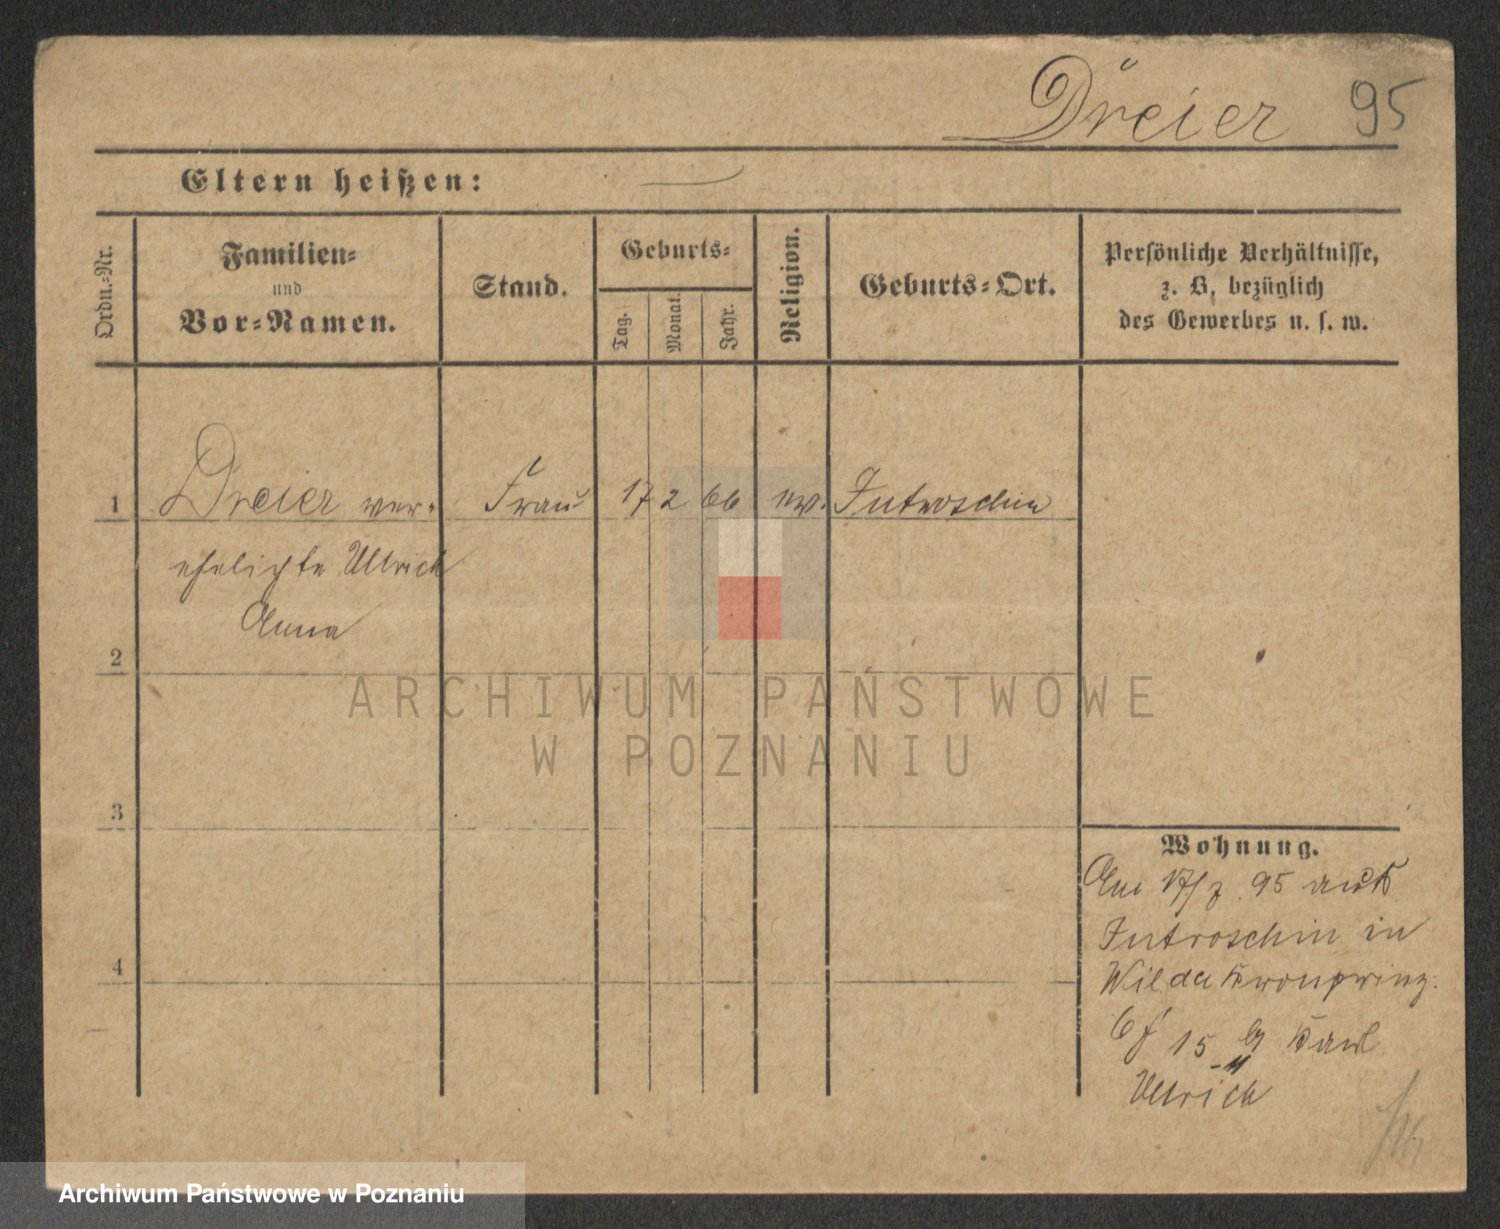 Dreier 95
Eltern heißen:
Ordn.=Nr.
Familien=
und
Vor=Namen.
Stand.
Geburts=
Tag.
Monat.
Jahr.
Religion.
Geburts=Ort.
Persönliche Verhältnisse,
z. B. bezüglich
des Gewerbes u. s. w.
1 Dreier ver= Frau 17 2 66 ev. Jutroschin
ehelichte Ullrich
Anna
2
ARCHIWUM PAŃSTWOWE
W POZNANIU
3
Wohnung.
Am 17/7 95 aus
Jutroschin in
Wilda Kronprinz.
4
15 Karl
Ullrich
Archiwum Państwowe w Poznaniu